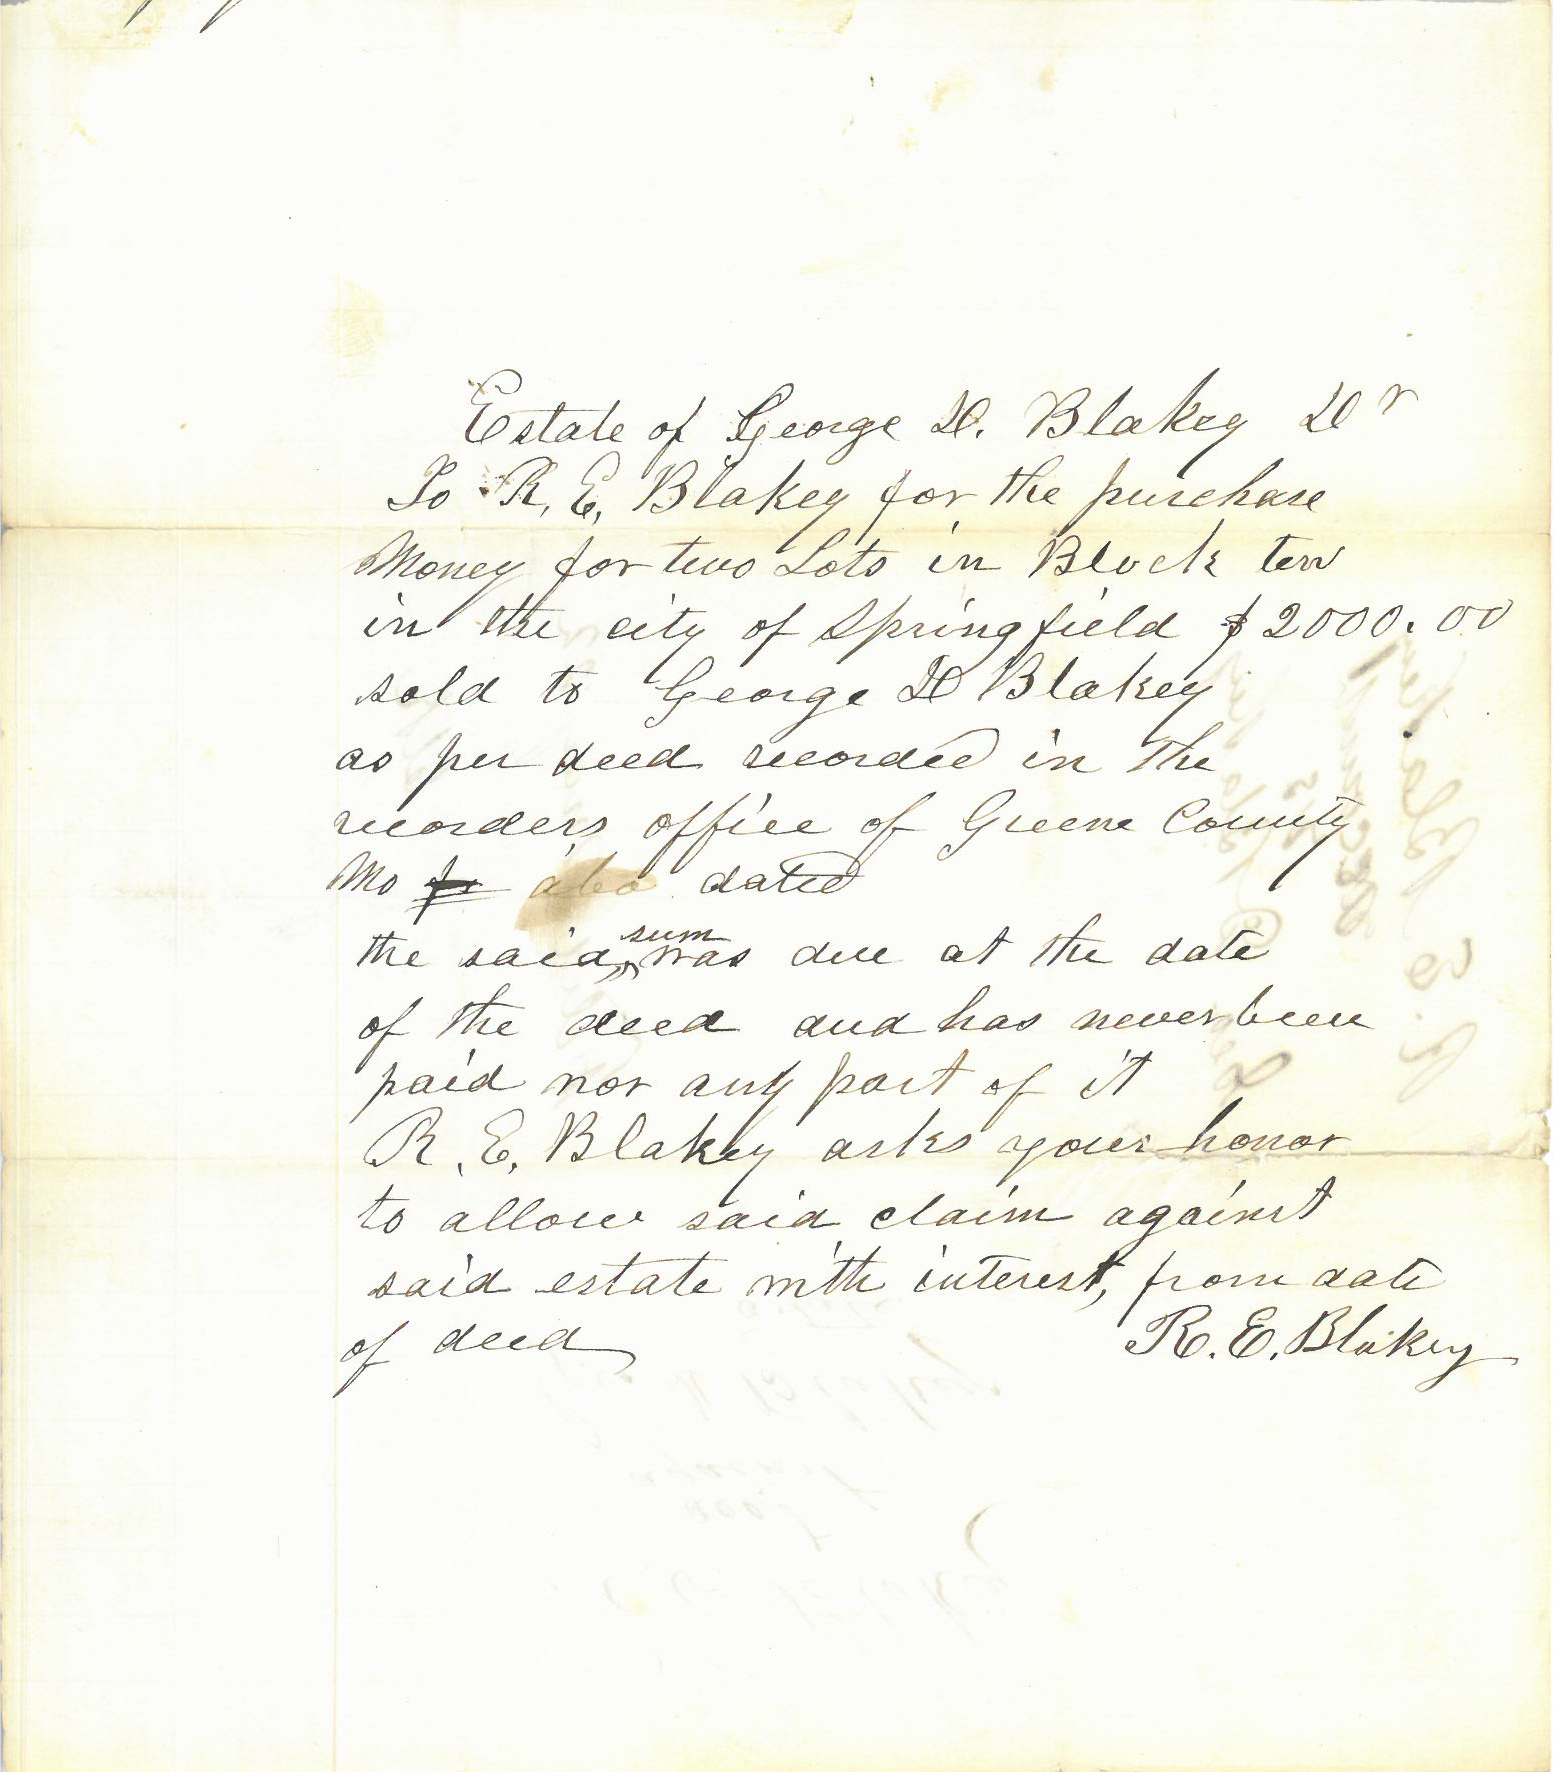 Estate of George D. Blakey Dr
To R. E. Blakey for the purchase
Money for two Lots in Block ten
in the city of Springfield $2000.00
sold to George D Blakey
as per deed recorded in the
recorders office of Greene County
Mo also dated
the said sum was due at the date
of the deed and has never been
paid nor any part of it
R. E. Blakey asks your honor
to allow said claim against
said estate with interest, from date
of deed
R. E. Blakey